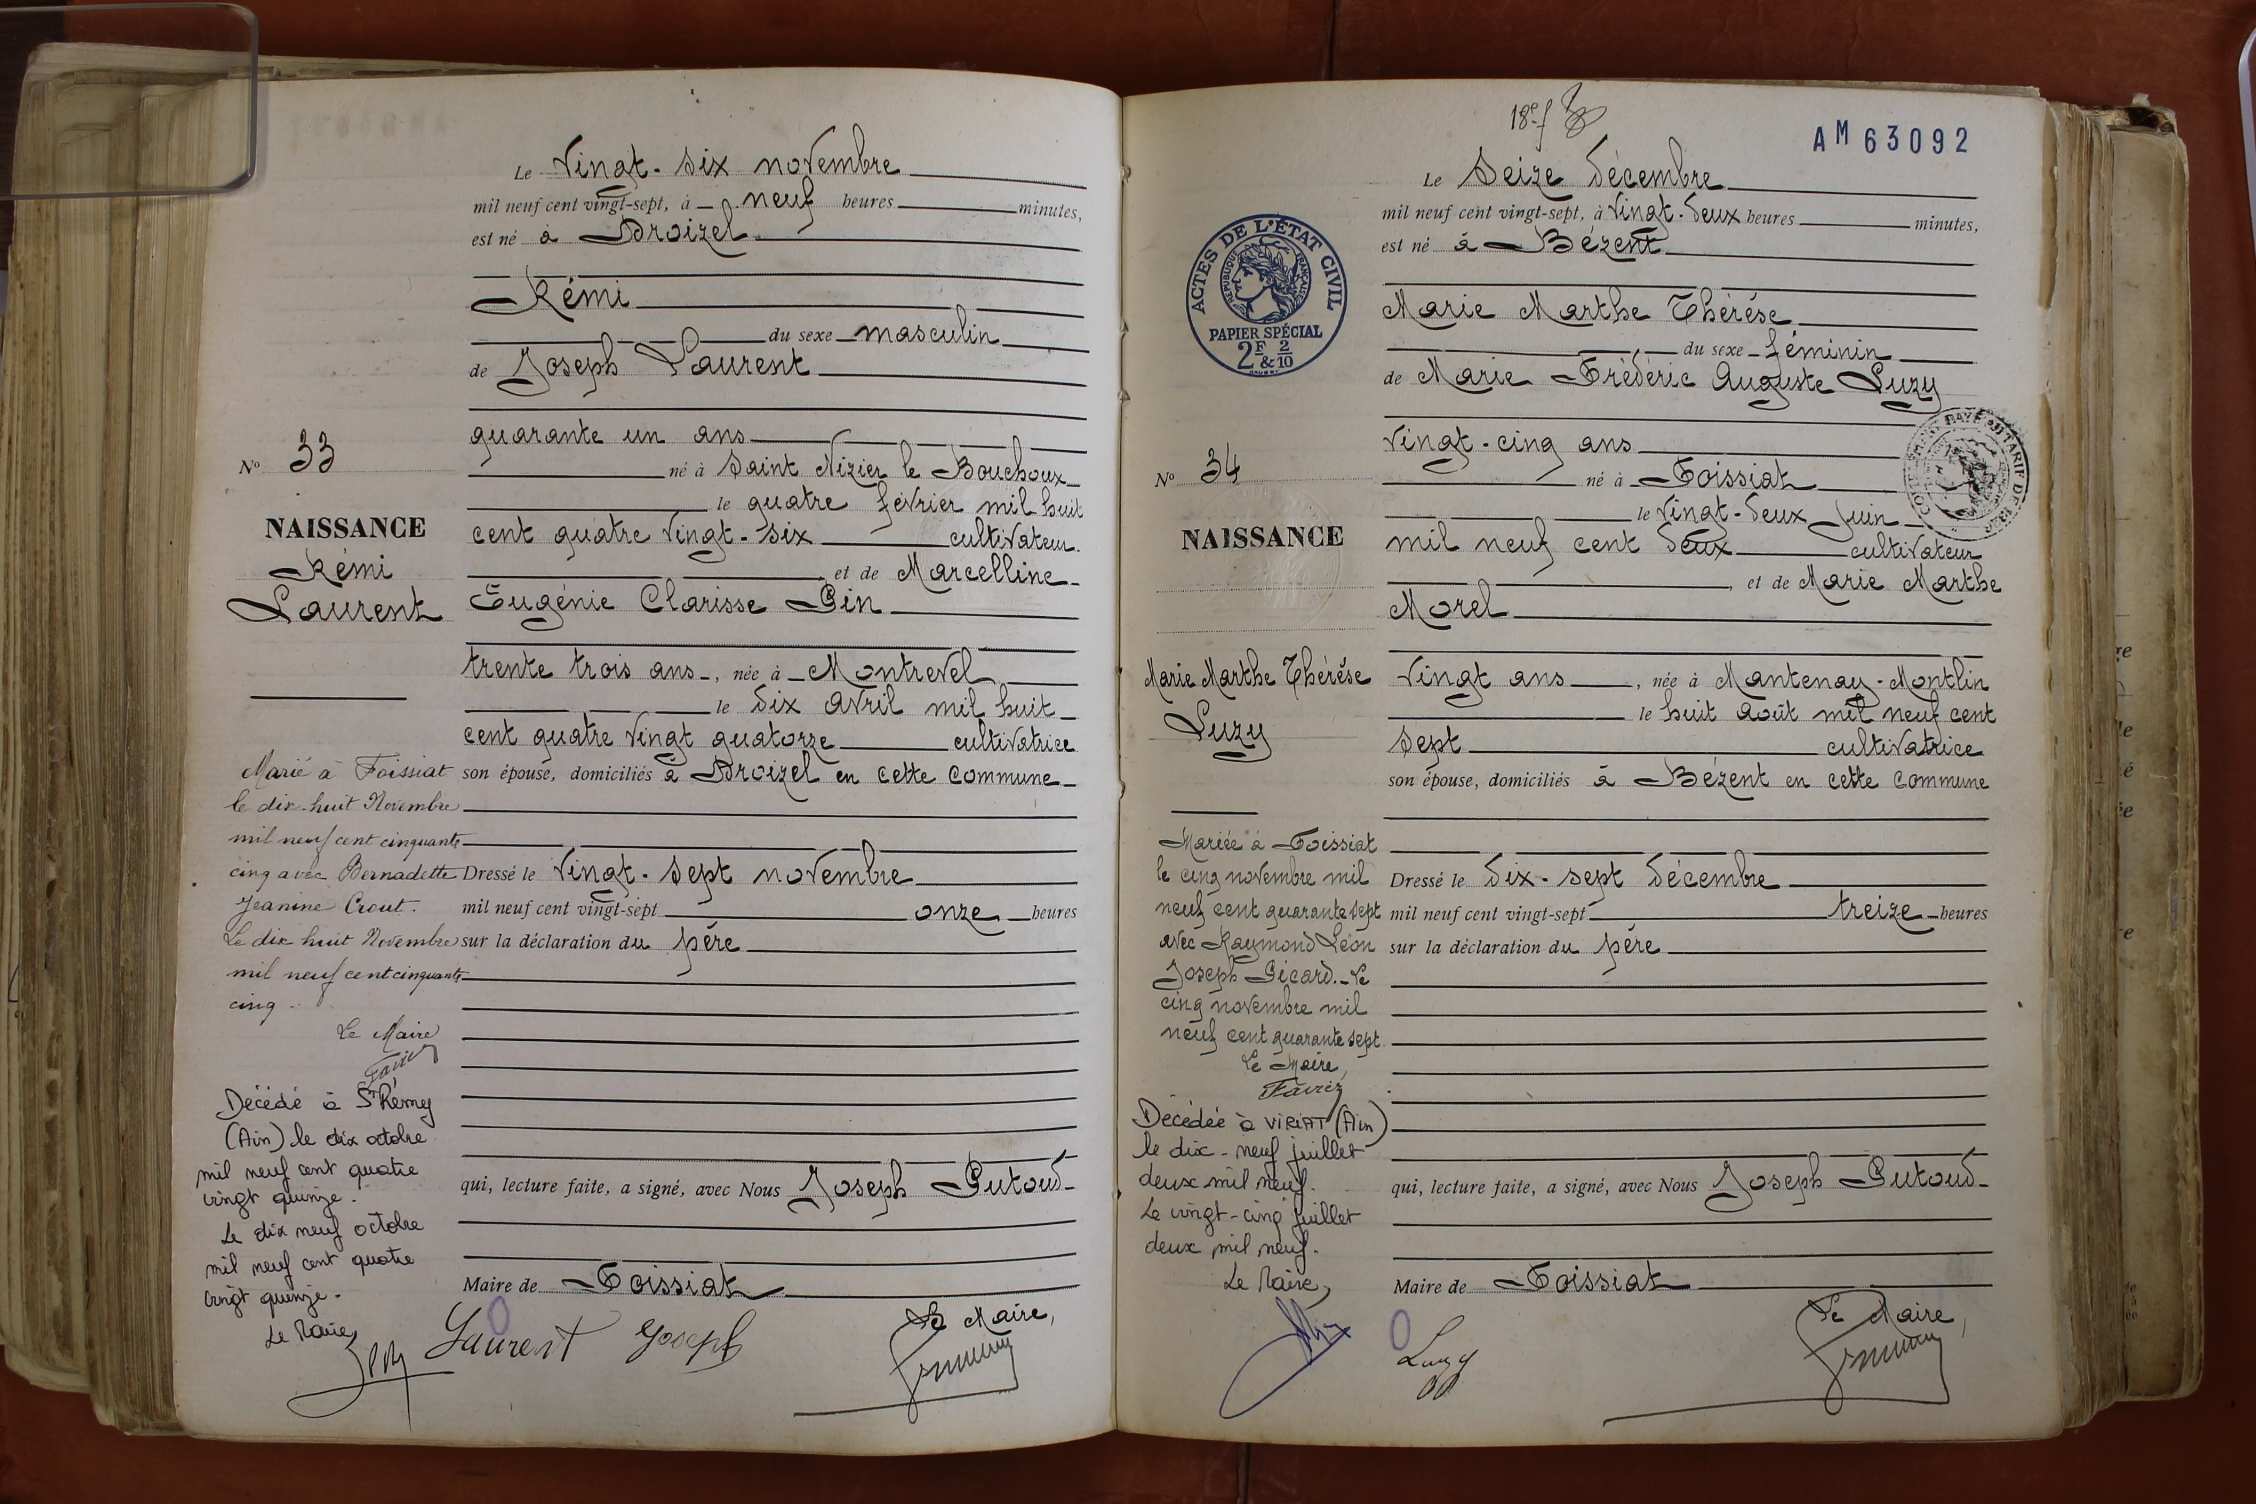 Le Vingt-six novembre
mil neuf cent vingt-sept, à neuf heures minutes,
est né à Droizel
Rémi
du sexe masculin
de Joseph Laurent
quarante un ans
né à Saint Nizier le Bouchoux
le quatre février mil huit
cent quatre vingt-six cultivateur
et de Marcelline
Eugénie Clarisse Pin
trente trois ans, née à Montrevel
le dix avril mil huit
cent quatre vingt quatorze cultivatrice
son épouse, domiciliés à Droizel en cette commune
Dressé le Vingt-sept novembre
mil neuf cent vingt-sept onze heures
sur la déclaration du père
qui, lecture faite, a signé, avec Nous Joseph Putoud
Maire de Foissiat
Le Maire,
Laurent Joseph
N° 33
NAISSANCE
Rémi
Laurent
Marié à Foissiat
le dix-huit Novembre
mil neuf cent cinquante
cinq avec Bernadette
Jeanine Crout.
Le dix huit Novembre
mil neuf cent cinquante
cinq
Le Maire
Décédé à St Rémy
(Ain) le dix octobre
mil neuf cent quatre
vingt quinze.
Le dix neuf octobre
mil neuf cent quatre
vingt quinze.
Le Maire,
18e f
AM 63092
ACTES DE L'ÉTAT CIVIL
RÉPUBLIQUE FRANÇAISE
PAPIER SPÉCIAL
2F & 2/10
Le Seize décembre
mil neuf cent vingt-sept, à Vingt-deux heures minutes,
est né à Bézent
Marie Marthe Thérèse
du sexe féminin
de Marie Frédéric Auguste Luzy
Vingt-cinq ans
né à Foissiat
le Vingt-deux Juin
mil neuf cent deux cultivateur
et de Marie Marthe
Morel
Vingt ans, née à Mantenay-Montlin
le huit août mil neuf cent
sept cultivatrice
son épouse, domiciliés à Bézent en cette commune
Dressé le dix-sept décembre
mil neuf cent vingt-sept treize heures
sur la déclaration du père
qui, lecture faite, a signé, avec Nous Joseph Putoud
Maire de Foissiat
Le Maire,
Luzy
N° 34
NAISSANCE
Marie Marthe Thérèse
Luzy
Mariée à Foissiat
le cinq novembre mil
neuf cent quarante sept
avec Raymond Léon
Joseph Picard. Le
cinq novembre mil
neuf cent quarante sept
Le Maire,
Décédée à VIRIAT (Ain)
le dix-neuf juillet
deux mil neuf.
Le vingt-cinq juillet
deux mil neuf.
Le Maire,